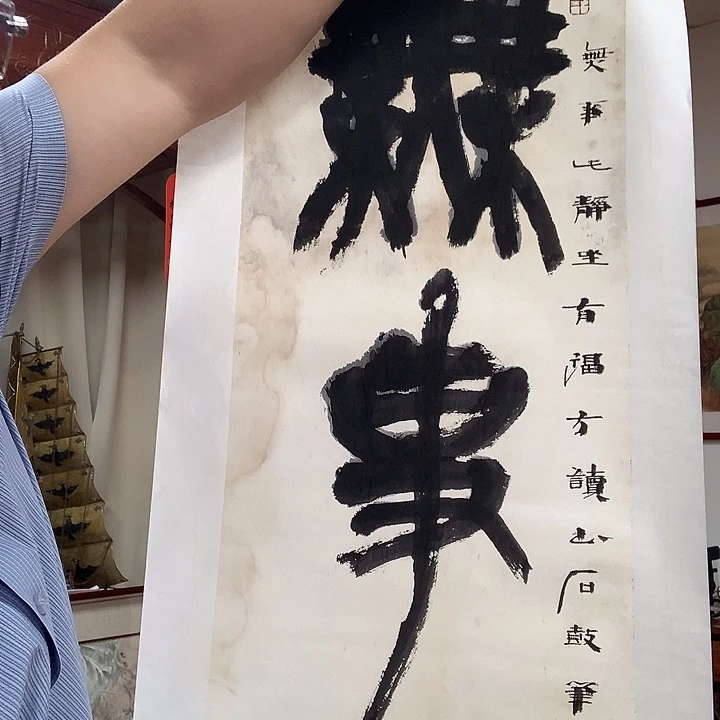 無事此靜坐有福方讀書石鼓筆
無事